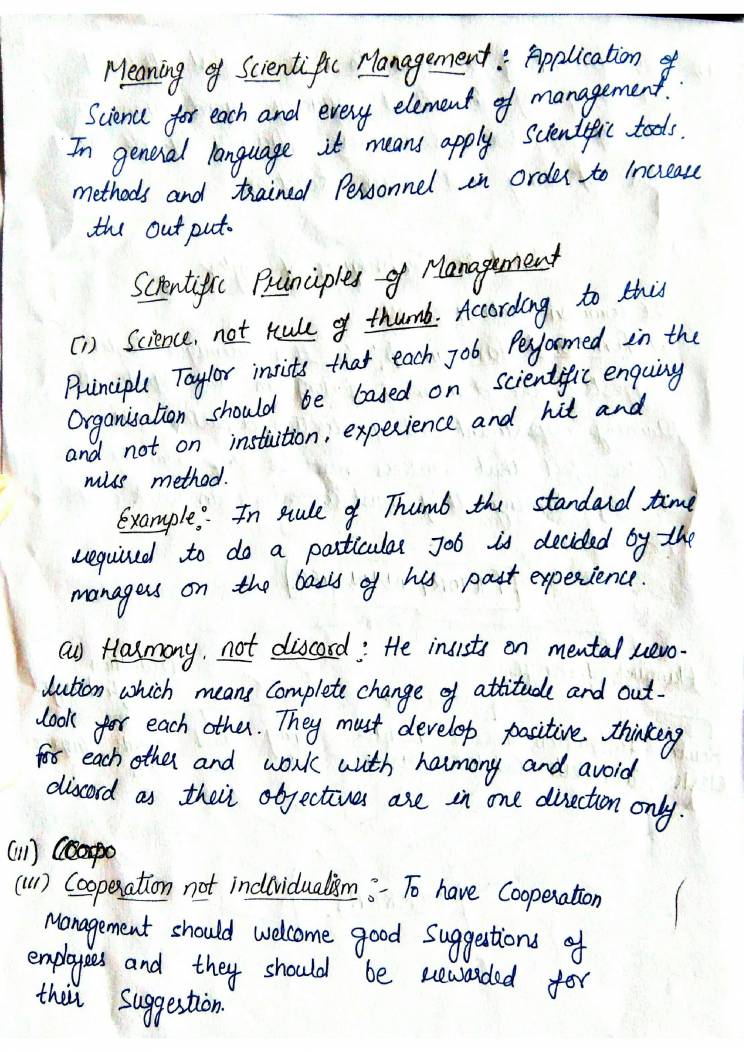 Meaning of Scientific Management :- Application of
Science for each and every element of management.
In general language it means apply Scientific tools.
methods and trained Personnel in order to Increase
the out put.
Scientific Principles of Management
(i) Science, not rule of thumb. According to this
Principle Taylor insists that each Job Performed in the
Organisation should be based on scientific enquiry
and not on instuition, experience and hit and
miss method.
Example :- In rule of Thumb the standard time
required to do a particular Job is decided by the
managers on the basis of his past experience.
(ii) Harmony, not discord : He insists on mental revo-
lution which means Complete change of attitude and out-
look for each other. They must develop positive thinking
for each other and work with harmony and avoid
discord as their objectives are in one direction only.
(iii)
(iii) Cooperation not individualism :- To have Cooperation
Management should welcome good Suggestions of
employees and they should be rewarded for
their Suggestion.